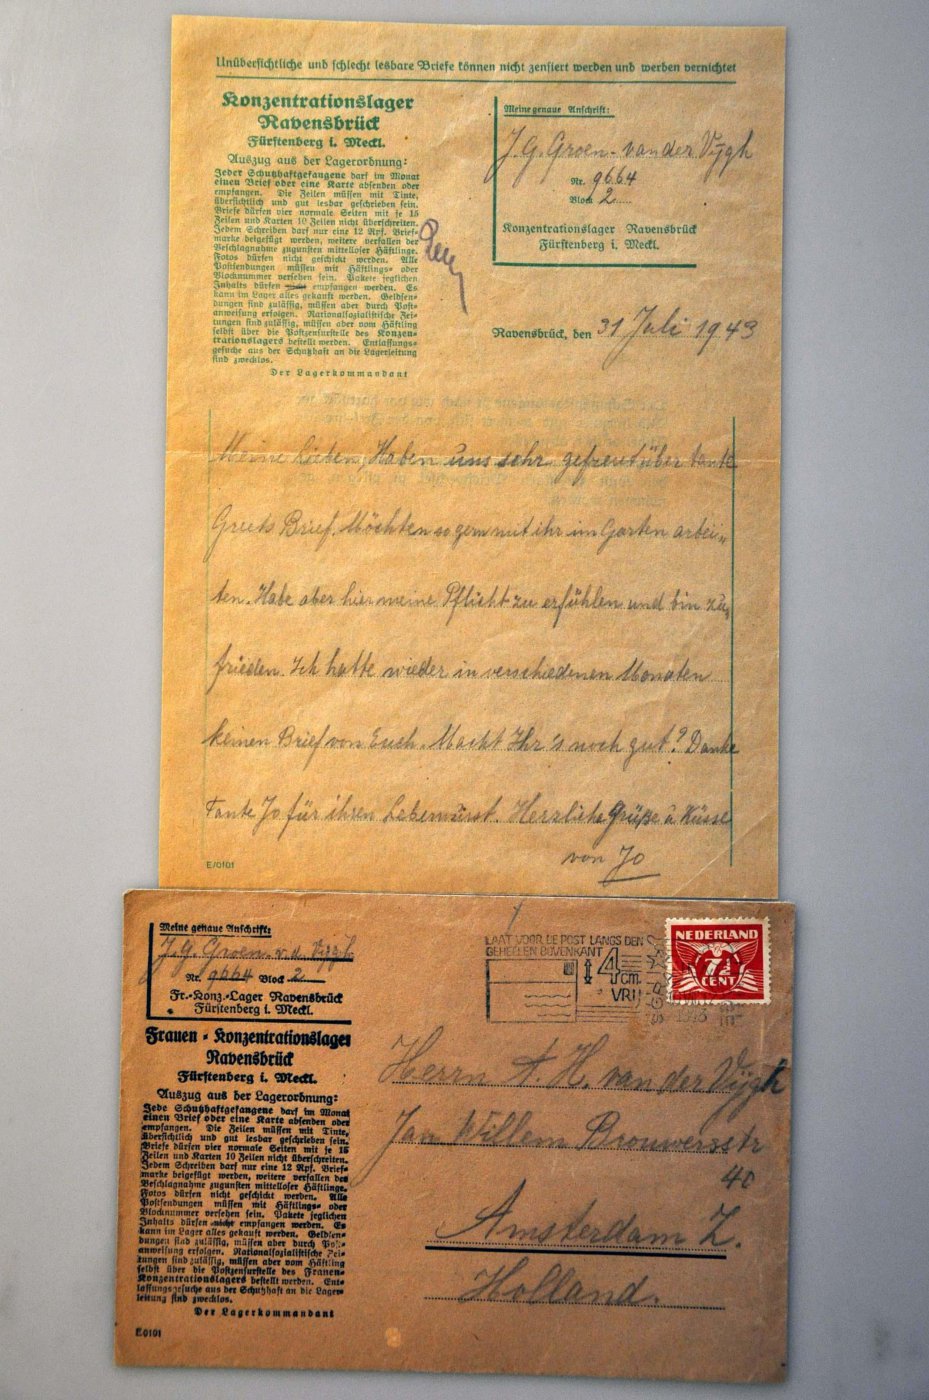 Unübersichtliche und schlecht lesbare Briefe können nicht zensiert werden und werden vernichtet
Konzentrationslager
Ravensbrück
Fürstenberg i. Meckl.
Auszug aus der Lagerordnung:
Jeder Schutzhaftgefangene darf im Monat
einen Brief oder eine Karte absenden oder
empfangen. Die Zeilen müssen mit Tinte,
übersichtlich und gut lesbar geschrieben sein.
Briefe dürfen vier normale Seiten mit je 15
Zeilen und Karten 10 Zeilen nicht überschreiten.
Jedem Schreiben darf nur eine 12 Rpf. Brief-
marke beigefügt werden, weitere verfallen der
Beschlagnahme zugunsten mittelloser Häftlinge.
Fotos dürfen nicht geschickt werden. Alle
Postsendungen müssen mit Häftlings- oder
Blocknummer versehen sein. Pakete jeglichen
Inhalts dürfen nicht empfangen werden. Es
kann im Lager alles gekauft werden. Geldsen-
dungen sind zulässig, müssen aber durch Post-
anweisung erfolgen. Nationalsozialistische Zei-
tungen sind zulässig, müssen aber vom Häftling
selbst über die Postzensurstelle des Konzen-
trationslagers bestellt werden. Entlassungs-
gesuche aus der Schutzhaft an die Lagerleitung
sind zwecklos.
Der Lagerkommandant
Meine genaue Anschrift:
J. G. Groen-van der Vijgh
Nr. 9664
Block 2
Konzentrationslager Ravensbrück
Fürstenberg i. Meckl.
Ravensbrück, den 31 Juli 1943
Meine Lieben, Haben uns sehr gefreut über Tante
Greets Brief. Möchten so gern mit ihr im Garten arbei„
ten. Habe aber hier meine Pflicht zu erfühlen und bin zu„
frieden. Ich hatte wieder in verschiedenen Monaten
keinen Brief von Euch. Macht Ihr's noch gut? Danke
Tante Jo für ihren Leberwurst. Herzliche Grüße u Küsse
von Jo
E/0101
Meine genaue Anschrift:
J. G. Groen-v.d. Vijgh
Nr. 9664 Block 2
Fr.-Konz.-Lager Ravensbrück
Fürstenberg i. Meckl.
Frauen-Konzentrationslager
Ravensbrück
Fürstenberg i. Meckl.
Auszug aus der Lagerordnung:
Jede Schutzhaftgefangene darf im Monat
einen Brief oder eine Karte absenden oder
empfangen. Die Zeilen müssen mit Tinte,
übersichtlich und gut lesbar geschrieben sein.
Briefe dürfen vier normale Seiten mit je 15
Zeilen und Karten 10 Zeilen nicht überschreiten.
Jedem Schreiben darf nur eine 12 Rpf. Brief-
marke beigefügt werden, weitere verfallen der
Beschlagnahme zugunsten mittelloser Häftlinge.
Fotos dürfen nicht geschickt werden. Alle
Postsendungen müssen mit Häftlings- oder
Blocknummer versehen sein. Pakete jeglichen
Inhalts dürfen nicht empfangen werden. Es
kann im Lager alles gekauft werden. Geldsen-
dungen sind zulässig, müssen aber durch Post-
anweisung erfolgen. Nationalsozialistische Zei-
tungen sind zulässig, müssen aber vom Häftling
selbst über die Postzensurstelle des Frauen-
Konzentrationslagers bestellt werden. Ent-
lassungsgesuche aus der Schutzhaft an die Lager-
leitung sind zwecklos.
Der Lagerkommandant
E0101
LAAT VOOR DE POST LANGS DEN
GEHEELEN BOVENKANT
4 cm.
VRIJ
1943
NEDERLAND
7½
CENT
Herrn A. H. van der Vijgh
Jan Willem Brouwersstr
40
Amsterdam Z.
Holland.